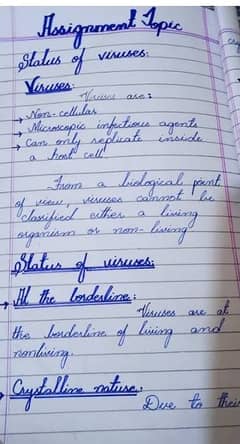 Assignment Topic
Status of viruses:
Viruses:
Viruses are:
→ Non-cellular
→ Microscopic infectious agents
→ Can only replicate inside
a host cell
From a biological point
of view, viruses cannot be
classified either a living
organism or non-living
Status of viruses:
→ At the borderline:
Viruses are at
the borderline of living and
nonliving.
→ Crystalline nature:
Due to their